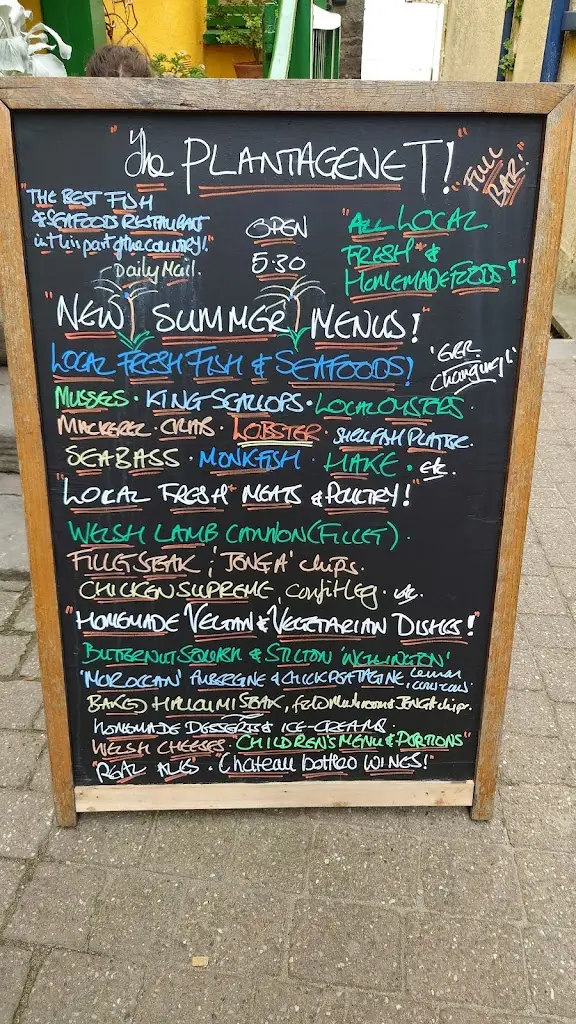 "The PLANTAGENET!"
"FULL BAR!"
"THE BEST FISH
& SEAFOODS RESTAURANT
in this part of the COUNTRY!"
Daily Mail.
OPEN
5.30
"ALL LOCAL
FRESH* &
HOMEMADE FOODS!"
"NEW SUMMER MENUS!"
LOCAL FRESH FISH & SEAFOODS!
'EVER
Changing!'
MUSSELS · KING SCALLOPS · LOCAL OYSTERS ·
MACKEREL · CRAB · LOBSTER · SHELLFISH PLATTER.
SEABASS · MONKFISH · HAKE · etc.
"LOCAL FRESH* MEATS & POULTRY!"
WELSH LAMB CANNON (FILLET) ·
FILLET STEAK; 'JENGA' chips.
CHICKEN SUPREME, confit leg · etc.
"HOMEMADE VEGAN & VEGETARIAN DISHES!"
BUTTERNUT SQUASH & STILTON 'WELLINGTON'
'MOROCCAN' AUBERGINE & CHICKPEA TAGINE, Lemon couscous.
BAKED HALLOUMI STEAK, field Mushrooms & JENGA chips.
HOMEMADE DESSERTS & ICE-CREAMS.
WELSH CHEESES · CHILDREN'S MENU & PORTIONS"
"REAL ALES · Chateau bottled WINES!"